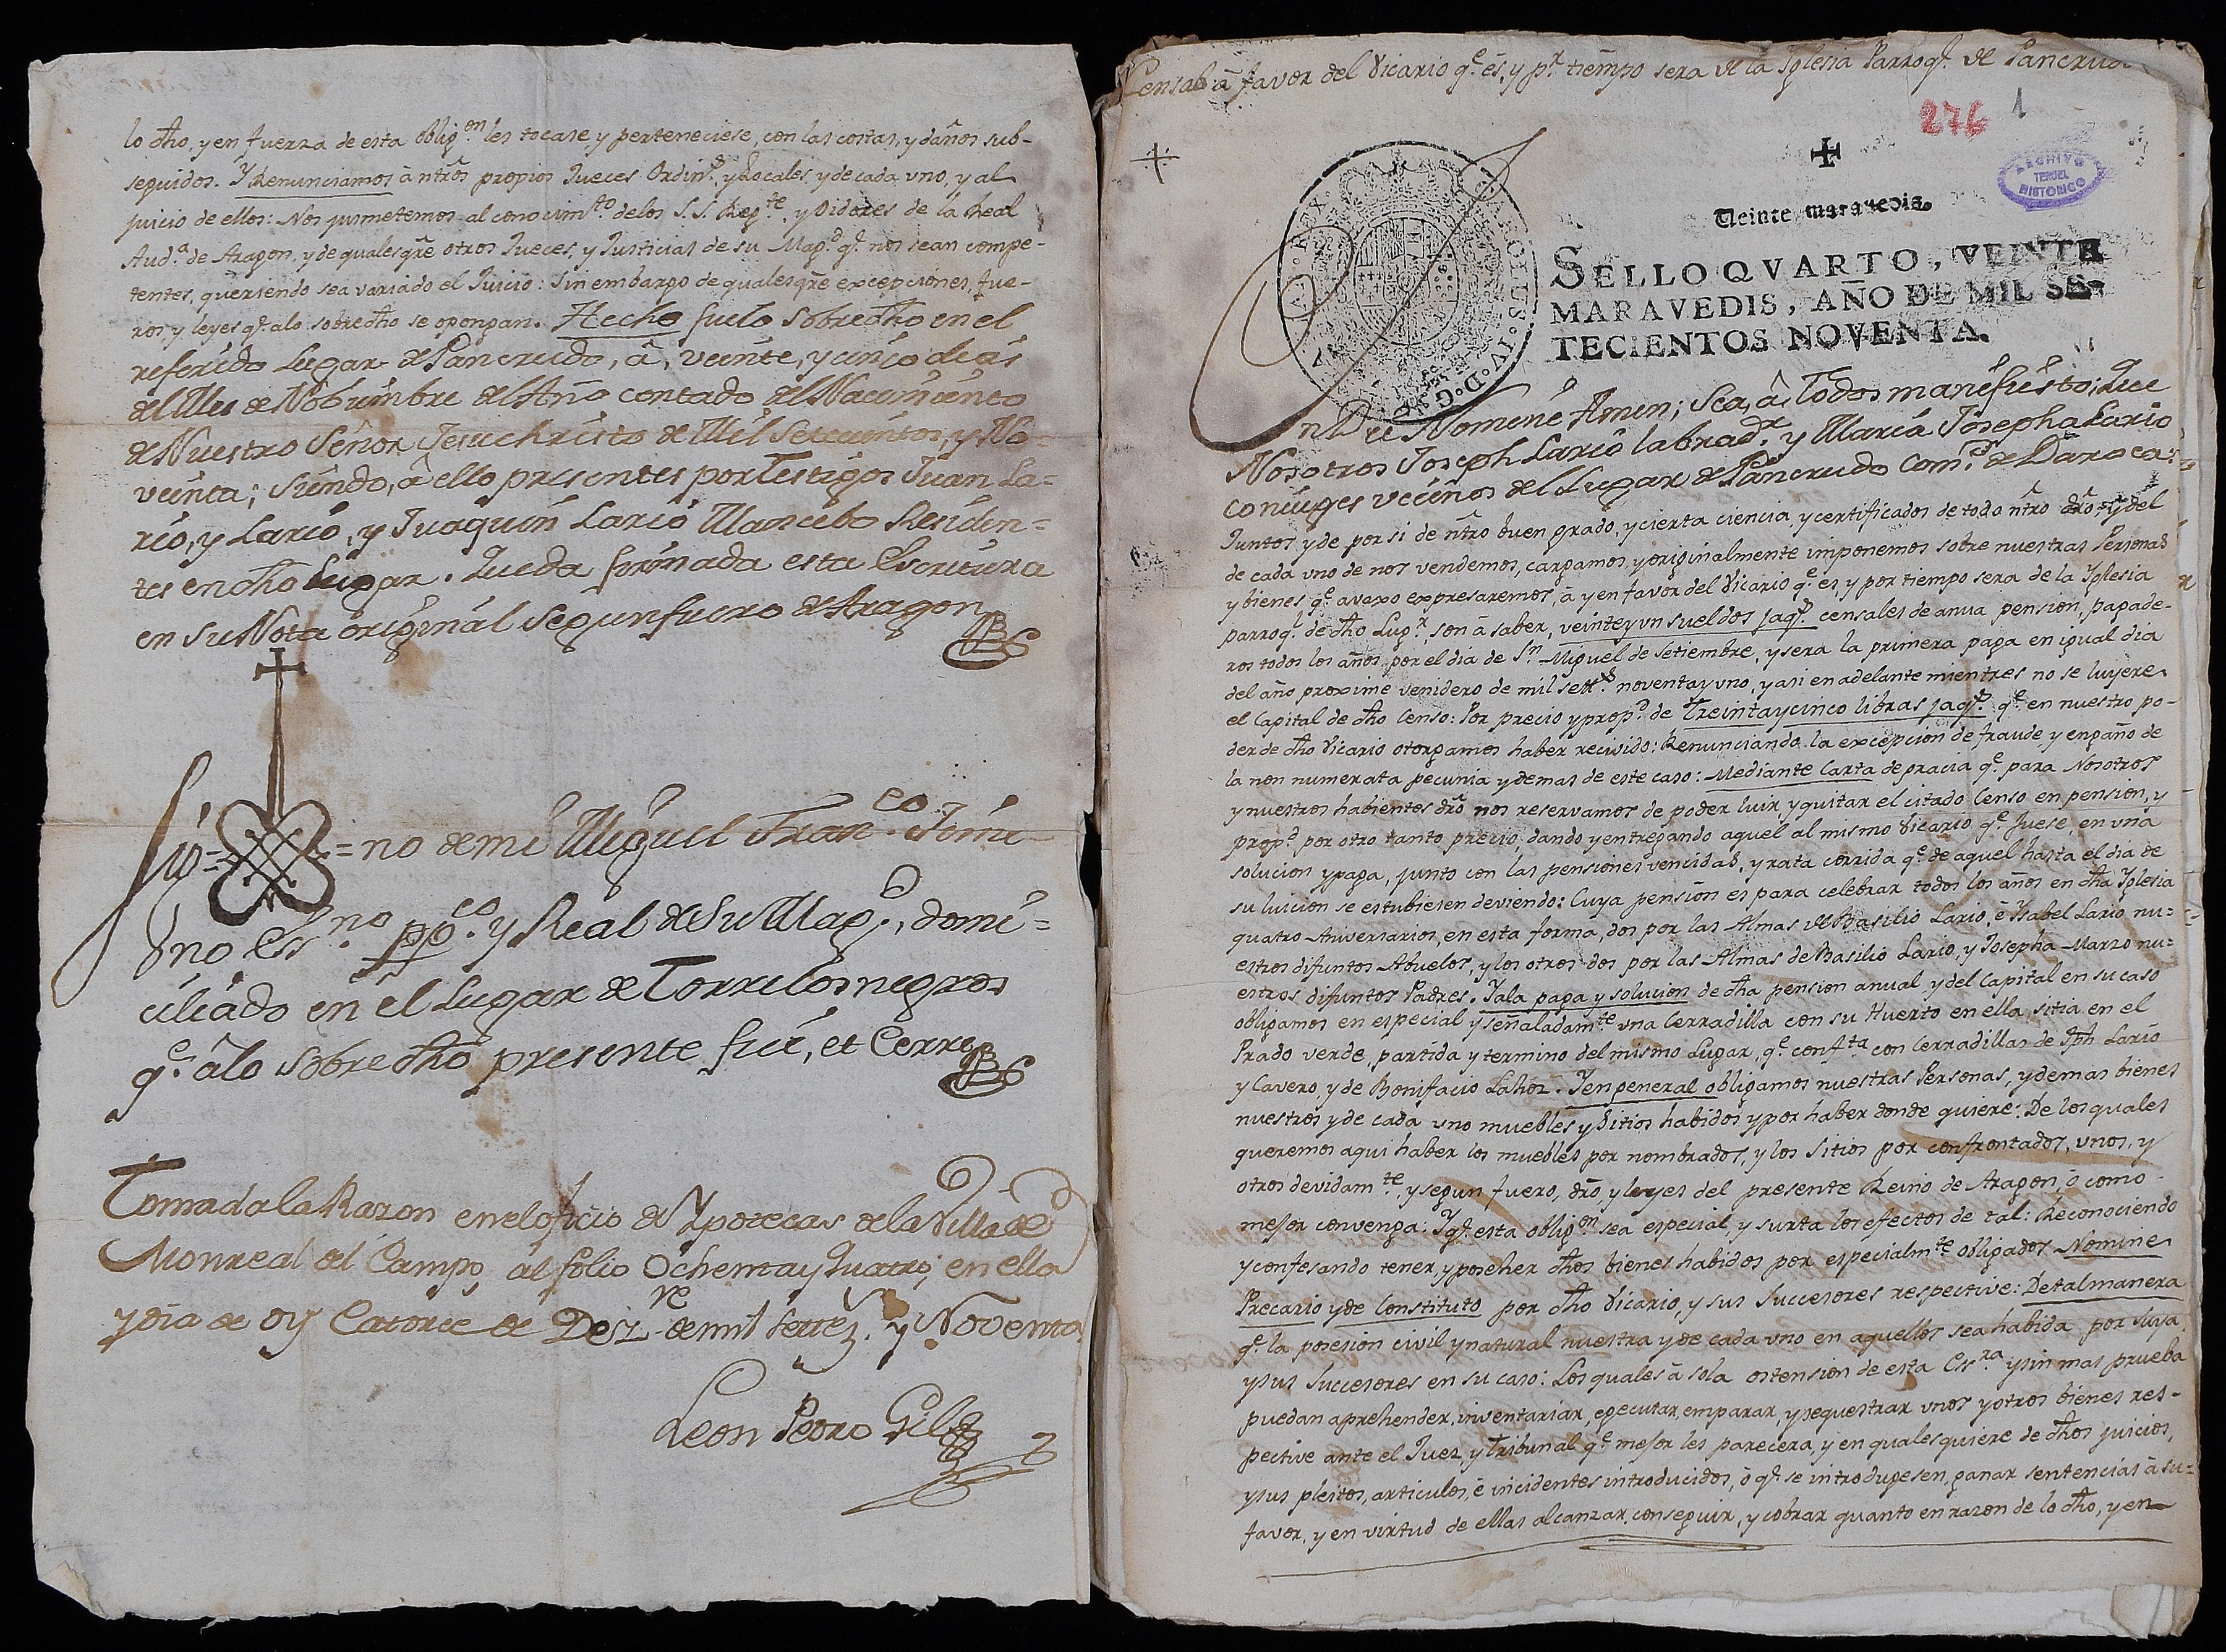 lo dho, y en fuerza de esta oblig.on les tocase y perteneciese, con las costas, y daños sub-
seguidos. Y Renunciamos à ntros propios Jueces Ordin.s y Locales, y de cada uno, y al
juicio de ellos: Nos jusmetemos al conocim.to de los S.S. Reg.te y Oidores de la Real
Aud.a de Aragon, y de qualesqre otros Jueces, y Justicias de su Mag.d q.e nos sean compe-
tentes, queriendo sea variado el Juicio: Sin embargo de qualesqre excepciones, fue-
ros, y leyes q.e alo sobredho se opongan. Hecho fue lo sobredho en el
referido Lugar de Pancrudo, â, veinte, y cinco dias
del Mes de Nobiembre del Año contado del Nacimiento
de Nuestro Señor Jesuchristo de Mil Setecientos, y No-
venta; siendo, â ello presentes por Testigos Juan La-
rio, y Lario, y Juaquin Lario Mancebo Residen-
tes en dho Lugar. Queda firmada esta Escritura
en su Nota original Segun fuero de Aragon
Sig= =no de mi Miguel Fran.co Jimi
no Ess.no pp.co y Real de Su Mag.d, domi=
ciliado en el Lugar de Torre los negros
q.e â lo sobre dho presente fui, et Cerre
Tomada la Razon en el oficio de Ypotecas de la Villa de
Monreal del Campo, al folio Ochenta y Quatro, en ella
y dia de oy Catorce de Dez.re de mil Settez.s y Noventa
Leon Pedro Gil
Censal â favor del Vicario q.e es, y p.r tiempo sera de la Yglesia Parroq.l de Pancrudo
276 1
ARCHIVO
TERUEL
HISTORICO
Veinte maravedis.
SELLO QVARTO, VEINTE
MARAVEDIS, AÑO DE MIL SE-
TECIENTOS NOVENTA.
CAROLUS IV. D. G.
In Dei Nomine Amen; Sea, â Todos manifiesto; Que
Nosotros Joseph Lario labrad.r y Maria Josepha Lario
coniuges vecinos del Lugar de Pancrudo Com.d de Daroca:
Juntos y de por si de ntro buen grado, y cierta ciencia, y certificados de todo ntro dro, y del
de cada uno de nos vendemos, cargamos, y originalmente imponemos sobre nuestras Personas
y bienes q.e avaxo expresaremos, à y en favor del Vicario q.e es, y por tiempo sera de la Yglesia
parroq.l de dho Lug.r, son à saber, veinte y un sueldos jaq.s censales de anua pension, pagade-
ros todos los años por el dia de S.n Miguel de Setiembre, y sera la primera paga en igual dia
del año proxime venidero de mil sett.s noventa y uno, y asi en adelante mientres no se luyere
el Capital de dho Censo: Por precio y prop.d de Treinta y cinco libras jaq.s q.e en nuestro po-
der de dho Vicario otorgamos haber recivido: Renunciando la excepcion de fraude, y engaño de
la non numerata pecunia y demas de este caso: Mediante Carta de gracia q.e para Nosotros
y nuestros habientes dro nos reservamos de poder luir, y quitar el citado Censo en pension, y
prop.d por otro tanto precio, dando y entregando aquel al mismo Vicario q.e fuese, en una
solucion y paga, junto con las pensiones vencidas, y rata corrida q.e de aquel hasta el dia de
su luicion se estubiesen deviendo: Cuya pension es para celebrar todos los años en dha Yglesia
quatro Aniversarios, en esta forma, dos por las Almas de Basilio Lario, è Ysabel Lario nu-
estros difuntos Abuelos, y los otros dos por las Almas de Basilio Lario, y Josepha Marzo nu-
estros difuntos Padres. Y ala paga y solucion de dha pension anual y del Capital en su caso
obligamos en especial y señaladam.te una Cerradilla con su Huerto en ella sitia en el
Prado verde, partida y termino del mismo Lugar, q.e conf.ta con Cerradillas de Jph Lario
y Cavero, y de Bonifacio Lahoz. Y en general obligamos nuestras Personas, y demas bienes
nuestros y de cada uno muebles y Sitios habidos y por haber donde quiere: De los quales
queremos aqui haber los muebles por nombrados, y los Sitios por confrontados, unos, y
otros devidam.te, y segun fuero, dro, y leyes del presente Reino de Aragon, ò como
mejor convenga: Y q.e esta oblig.on sea especial, y surta los efectos de tal: Reconociendo
y confesando tener, y poseher dhos bienes habidos por especialm.te obligados. Nomine
Precario y de Constituto por dho Vicario, y sus Succesores respective: De tal manera
q.e la posesion civil y natural nuestra y de cada uno en aquellos sea habida por suya,
y sus Succesores en su caso: Los quales à sola ostension de esta Ess.ra y sin mas prueba
puedan aprehender, inventariar, egecutar, emparar, y sequestrar unos y otros bienes res-
pective ante el Juez, y Tribunal q.e mejor les parecera, y en qualesquiere de dhos juicios,
y sus pleitos, articulos, è incidentes introducidos, ò q.e se introdugesen, ganar sentencias à su
favor, y en virtud de ellas alcanzar, conseguir, y cobrar quanto en razon de lo dho, y en